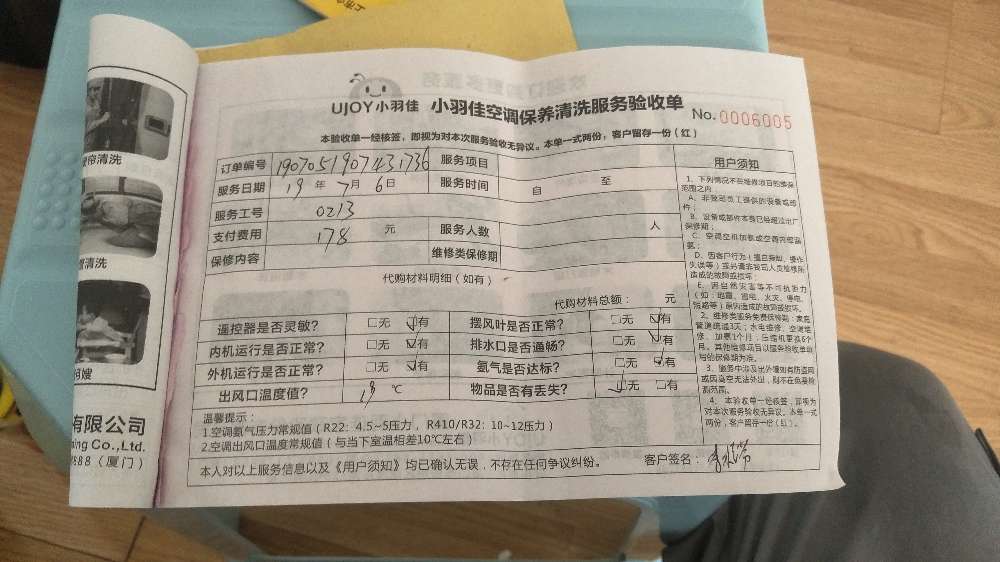 UJOY小羽佳 小羽佳空调保养清洗服务验收单
No.0006005
本验收单一经核签，即视为对本次服务验收无异议。本单一式两份，客户留存一份（红）
订单编号 1907051907431736 服务项目
服务日期 19 年 7 月 6 日 服务时间 自 至
服务工号 0213
支付费用 178 元 服务人数 人
保修内容 维修类保修期
代购材料明细（如有）
代购材料总额： 元
遥控器是否灵敏？ □无 ☑有 摆风叶是否正常？ □无 ☑有
内机运行是否正常？ □无 ☑有 排水口是否通畅？ □无 ☑有
外机运行是否正常？ □无 ☑有 氨气是否达标？ □无 ☑有
出风口温度值？ ℃ 物品是否有丢失？ ☑无 □有
温馨提示：
1.空调氨气压力常规值（R22：4.5~5压力，R410/R32：10~12压力）
2.空调出风口温度常规值（与当下室温相差10℃左右）
本人对以上服务信息以及《用户须知》均已确认无误，不存在任何争议纠纷。 客户签名：
用户须知
1、下列情况不在维修项目的维保
范围之内
A、非我司员工提供的设备或部
件；
B、设备或部件本身已经超过出厂
保修期；
C、空调空机加氨或空调内管漏
氨；
D、因客户行为（擅自拆卸、操作
失误等）或另请非我司人员检修所
造成的故障或损坏；
E、因自然灾害等不可抗拒力
（如：地震、雷电、火灾、停电、
短路等）原因造成的故障或损坏。
2、维修类服务免费保修期：家庭
管道疏通3天；水电维修、空调维
修、加氨1个月；压缩机更换6个
月。其他维修项目以服务验收单填
写的保修期为准。
3、服务中涉及出外墙如有防盗网
或因高空无法外出，则不在免费检
测范围。
4、本验收单一经核签，即视为
对本次服务验收无异议。本单一式
两份，客户留存一份（红）。
清洗
清洗
嫂
有限公司
ning Co.,Ltd.
（厦门）